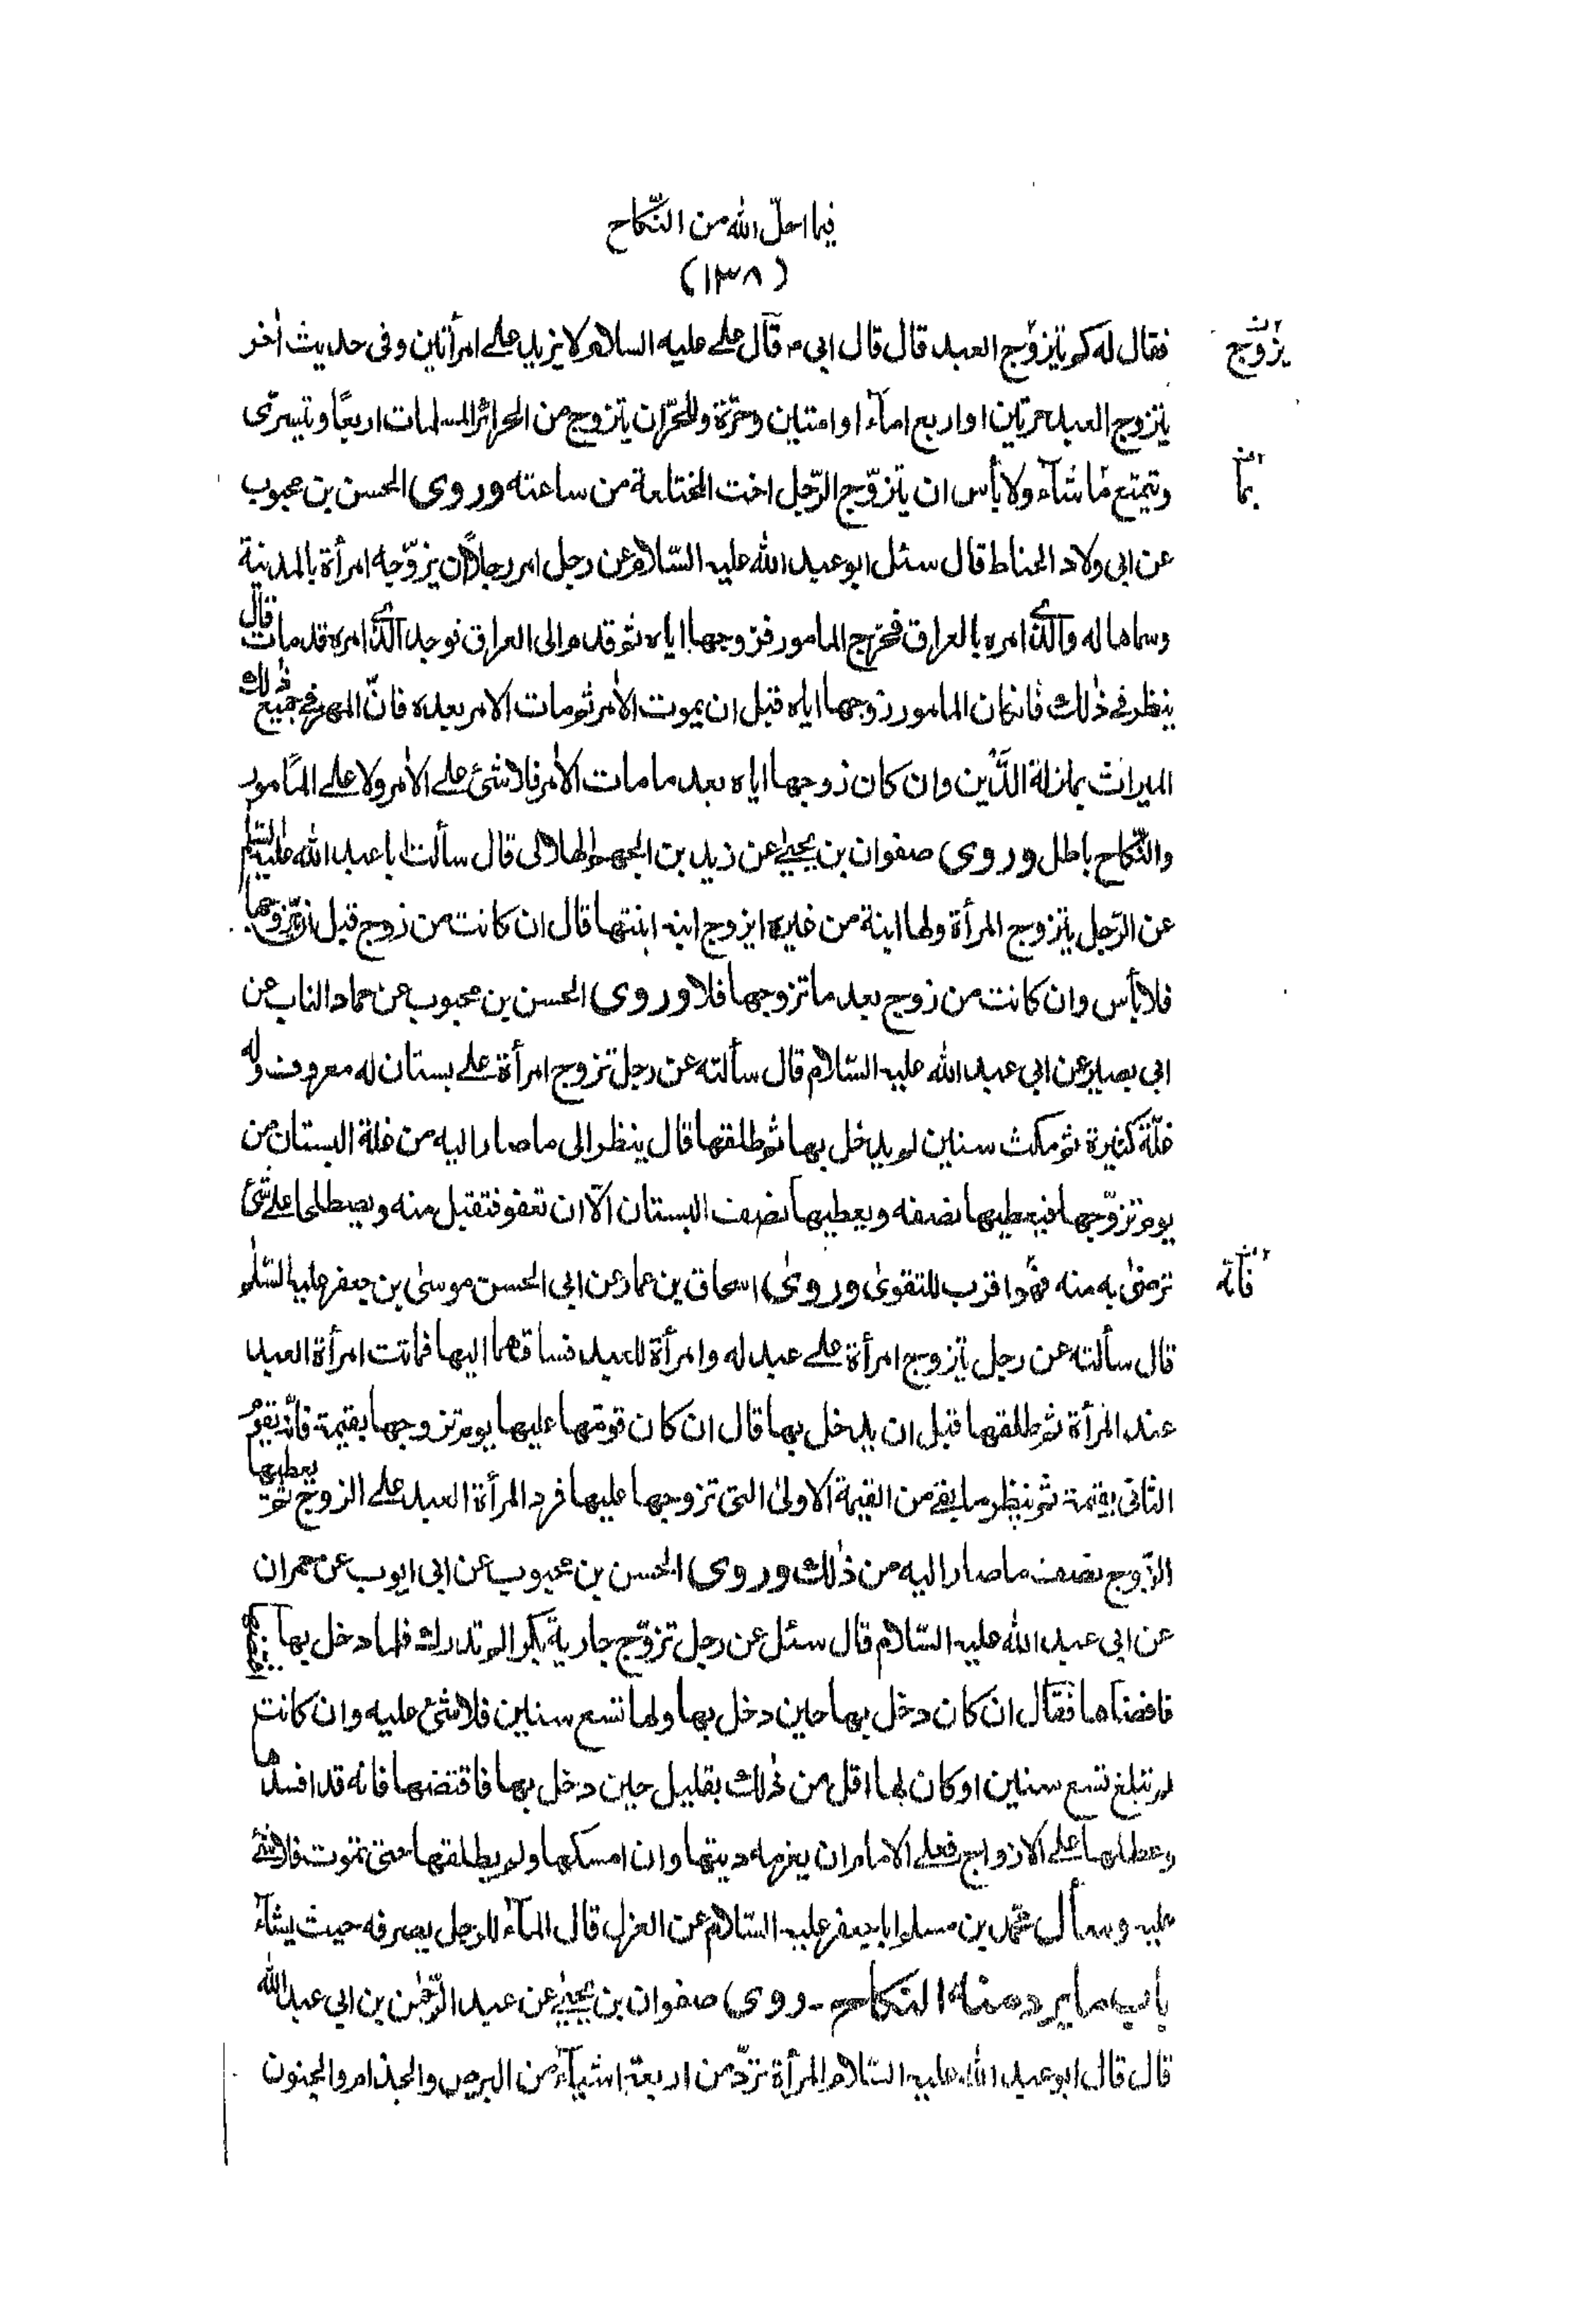 فيما احلّ الله من النّكاح
(١٣٨)
فقال له كم يتزوّج العبد قال قال ابي ؑ قال علي عليه السلام لا يزيد علي امرأتين وفي حديث اٰخر
يتزوج العبد حرتين او اربع امآء او امتين وحرّة وللحرّ ان يتزوج من الحرائر المسلمات اربعًا ويتسرّى
ويتمتع ما شآء ولا بأس ان يتزوّج الرّجل اخت المختلعة من ساعته وروى الحسن بن محبوب
عن ابي ولاد الحناط قال سئل ابو عبد الله عليه السّلام عن رجل امر رجلاً ان يزوّجه امرأة بالمدينة
وسماها له والّذي امره بالعراق فخرج المامور فزوجها اياه ثم قدم الى العراق فوجد الّذي امره قد مات قال
ينظر في ذٰلك فان كان المامور زوجها اياه قبل ان يموت الاٰمر ثم مات الاٰمر بعده فانّ المهر في جميع ذٰلك
الميراث بمنزلة الدَّين وان كان زوجها اياه بعد ما مات الاٰمر فلا شئ علي الاٰمر ولا علي المأمور
والنّكاح باطل وروى صفوان بن يحيىٰ عن زيد بن الجهم الهلالي قال سألت ابا عبد الله عليه السّلم
عن الرّجل يتزوج المرأة ولها ابنة من غيره ايزوج ابنه ابنتها قال ان كانت من زوج قبل ان يتزوّجها
فلا بأس وان كانت من زوج بعد ما تزوجها فلا وروى الحسن بن محبوب عن حماد الناب عن
ابي بصير عن ابي عبد الله عليه السّلام قال سألته عن رجل تزوج امرأة علي بستان له معروف وله
غلّة كثيرة ثم مكث سنين لم يدخل بها ثم طلقها قال ينظر الى ما صار اليه من غلة البستان من
يوم تزوّجها فيعطيها نصفه ويعطيها نصف البستان الّا ان تعفو فتقبل منه ويصطلحا علي شئ
ترضىٰ به منه فهو اقرب للتقوىٰ وروىٰ اسحاق بن عمار عن ابي الحسن موسىٰ بن جعفر عليهما السّلم
قال سألته عن رجل يتزوج امرأة علي عبد له وامرأة للعبد فساقهما اليها فماتت امرأة العبد
عند المرأة ثم طلقها قبل ان يدخل بها قال ان كان قومها عليها يوم تزوجها بقيمة فانّه يقوم
الثاني بقيمة ثم ينظر ما بقي من القيمة الاولىٰ التى تزوجها عليها فترد المرأة العبد علي الزوج ثم يعطيها
الزّوج نصف ما صار اليه من ذٰلك وروى الحسن بن محبوب عن ابي ايوب عن حمران
عن ابي عبد الله عليه السّلام قال سئل عن رجل تزوّج جارية بكرا لم تدرك فلما دخل بها
فافضاها فقال ان كان دخل بها حين دخل بها ولها تسع سنين فلا شئ عليه وان كانت
لم تبلغ تسع سنين او كان لها اقل من ذٰلك بقليل حين دخل بها فاقتضها فانه قد افسدها
وعطلها علي الازواج فعلي الامام ان يغرمه ديتها وان امسكها ولم يطلقها حتى تموت فلا شئ
عليه وسأل محمّد بن مسلم ابا جعفر عليه السّلام عن العزل قال المآء للرجل يصرفه حيث يشآء
باب ما يرد منه النكاح - روى صفوان بن يحيىٰ عن عبد الرّحمٰن بن ابي عبد الله
قال قال ابو عبد الله عليه السّلام المرأة تردّ من اربعة اشيآء من البرص والجذام والجنون
يزوّج
بما
فانّه